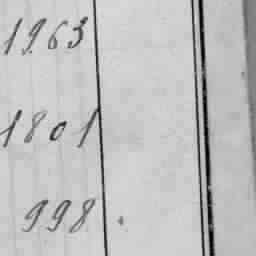 1963
1801
998